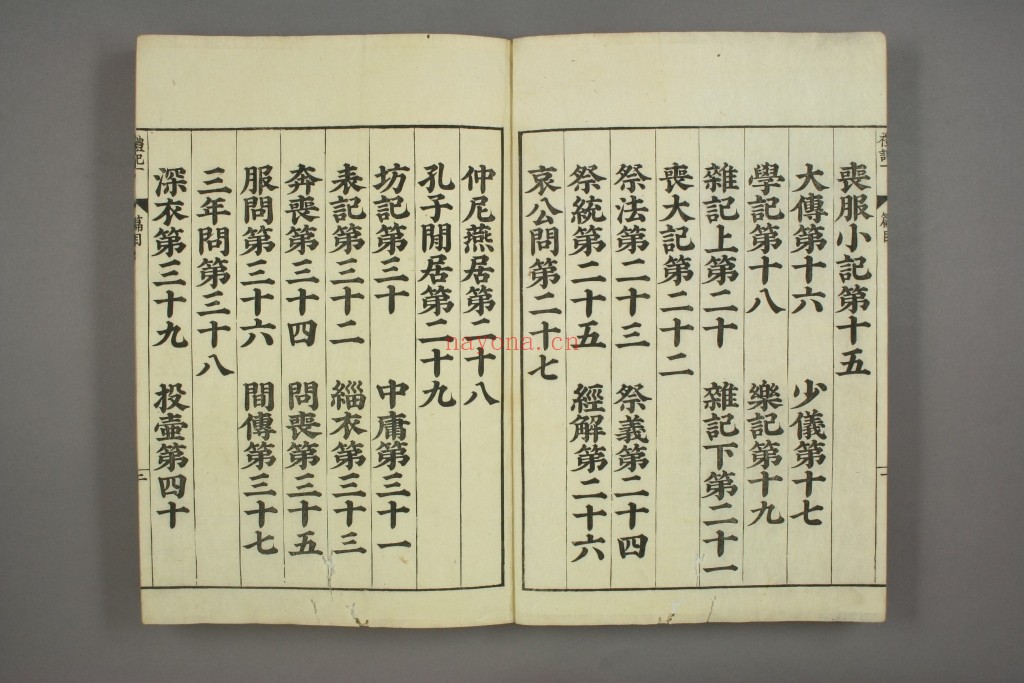 喪服小記第十五
大傳第十六 少儀第十七
學記第十八 樂記第十九
雜記上第二十 雜記下第二十一
喪大記第二十二
祭法第二十三 祭義第二十四
祭統第二十五 經解第二十六
哀公問第二十七
仲尼燕居第二十八
孔子閒居第二十九
坊記第三十 中庸第三十一
表記第三十二 緇衣第三十三
奔喪第三十四 問喪第三十五
服問第三十六 間傳第三十七
三年問第三十八
深衣第三十九 投壺第四十
nayona.cn